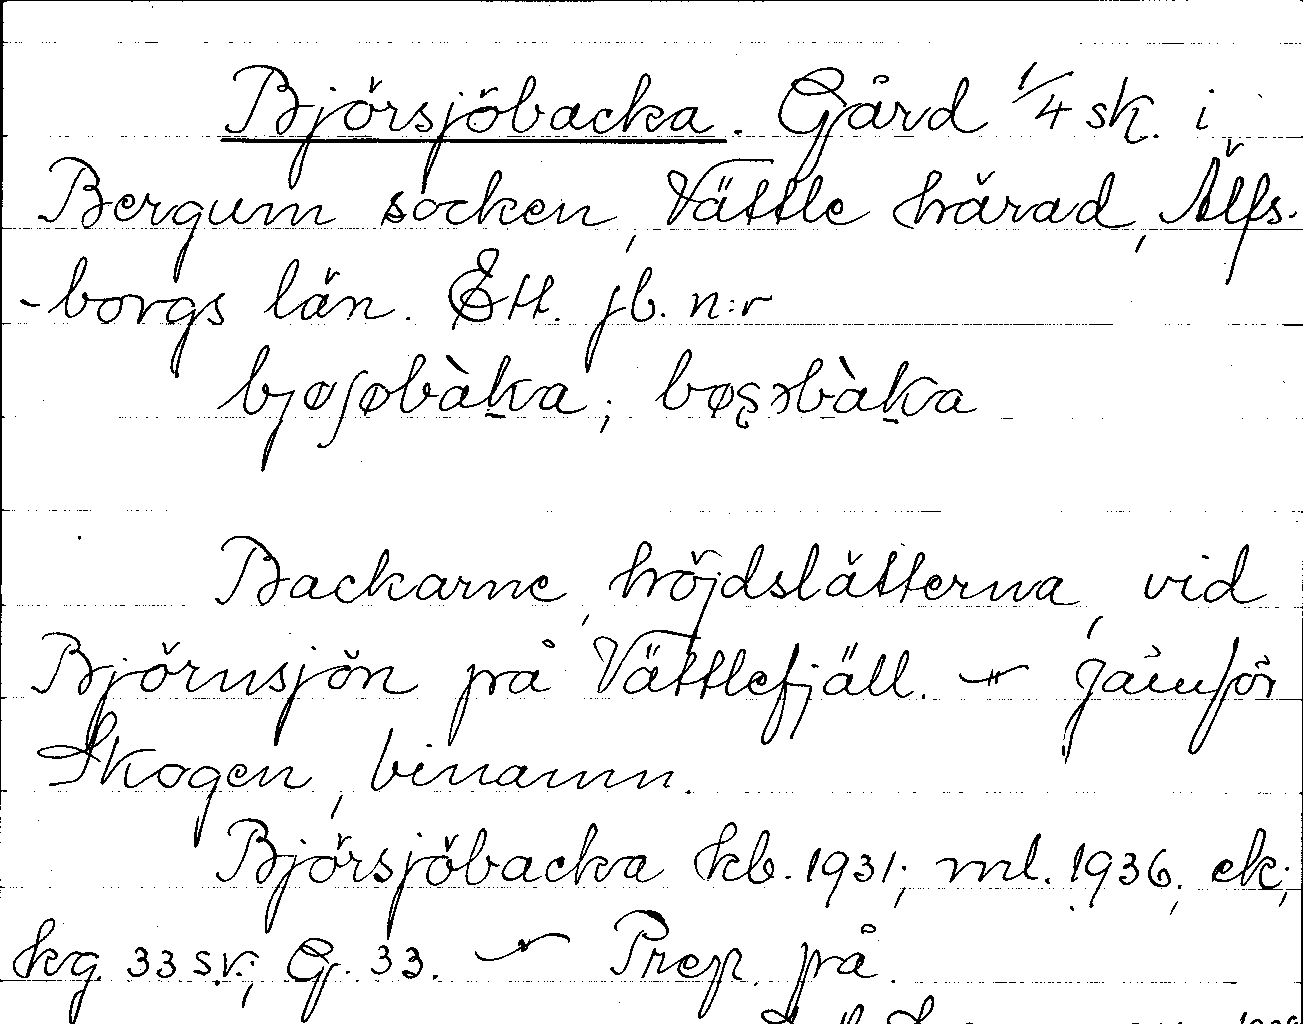 Björsjöbacka. Gård 1/4 sk. i
Bergum socken, Vättle härad, Älfs-
-borgs län. Ett. jb. n:r
bjøʃøbàka; bøʂəbàka
Backarne, höjdslätterna, vid
Björnsjön på Vättlefjäll. — Jämför
Skogen, binamn.
Björsjöbacka kb. 1931; ml. 1936, ek;
kg. 33 sv.; G. 33. — Prep. på.